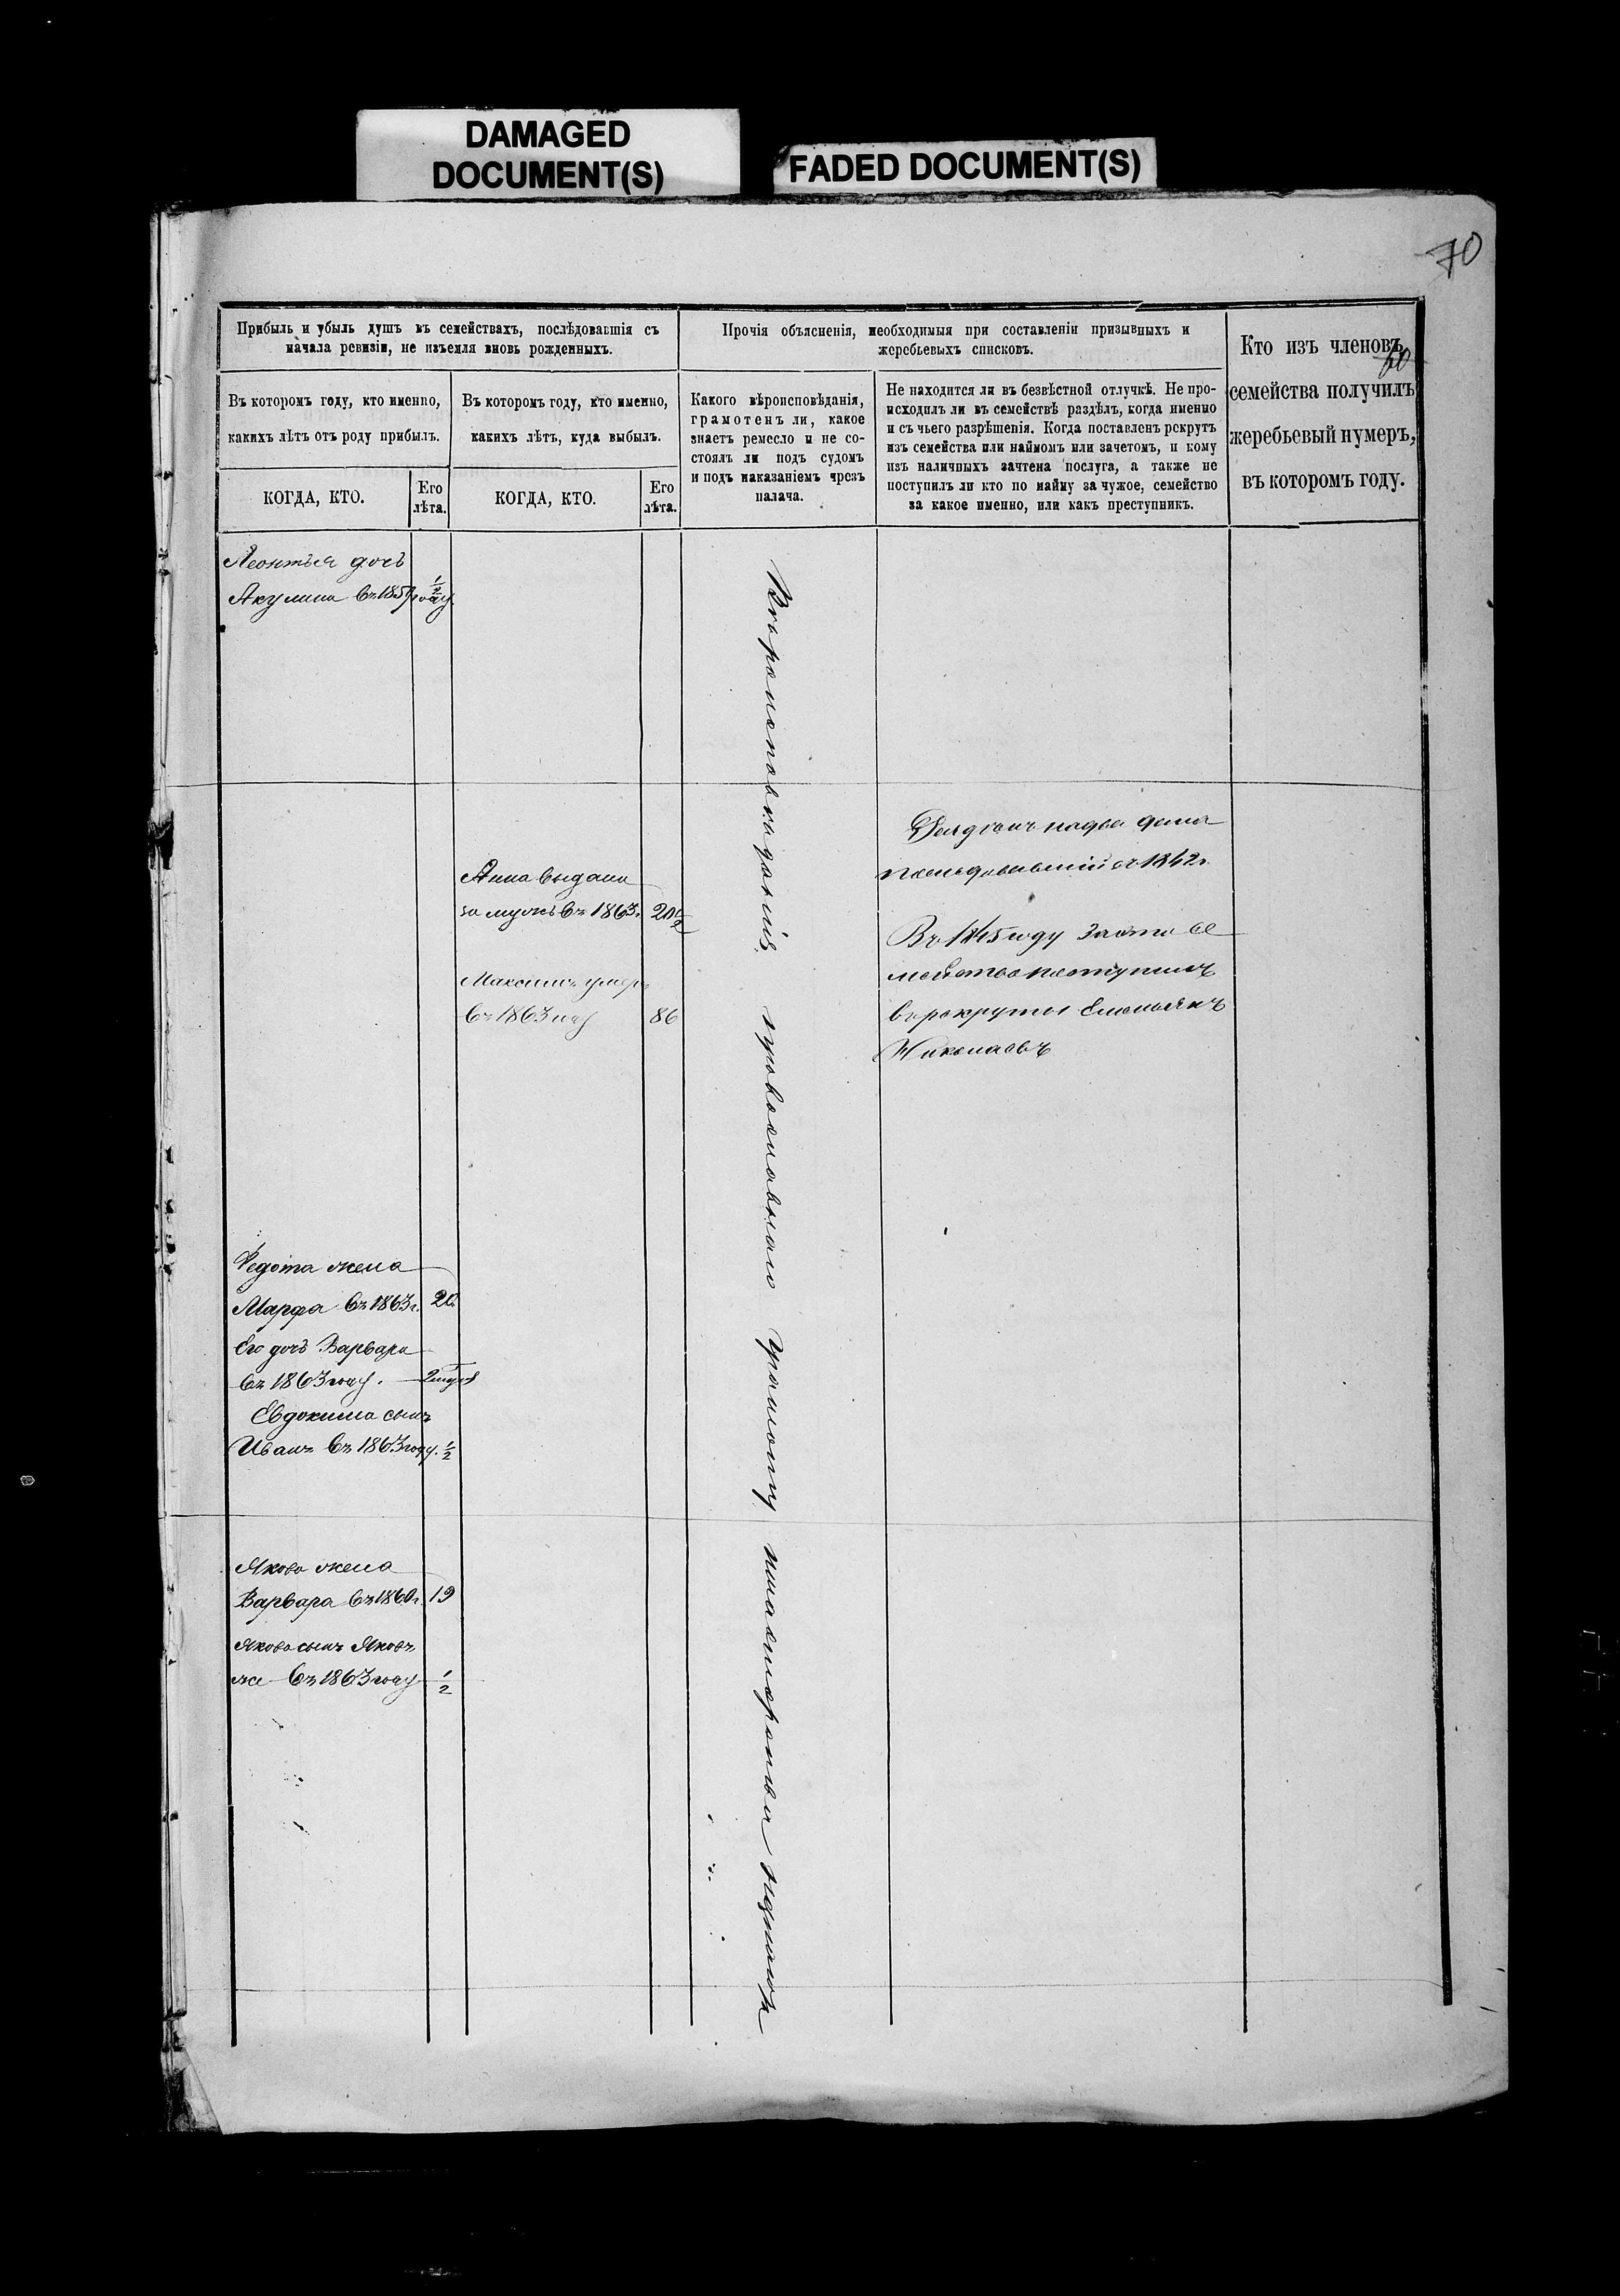 DAMAGED
DOCUMENT(S)
FADED DOCUMENT(S)
70
Прибыль и убыль душъ въ семействахъ, послѣдовавшія съ
начала ревизіи, не изъемля вновь рожденныхъ.
Прочія объясненія, необходимыя при составленіи призывныхъ и
жеребьевыхъ списковъ.
Кто изъ членовъ
60
семейства получилъ
жеребьевый нумеръ,
въ которомъ году.
Въ которомъ году, кто именно,
какихъ лѣтъ отъ роду прибылъ.
Въ которомъ году, кто именно,
какихъ лѣтъ, куда выбылъ.
Какого вѣроисповѣданія,
грамотенъ ли, какое
знаетъ ремесло и не со-
стоялъ ли подъ судомъ
и подъ наказаніемъ чрезъ
палача.
Не находится ли въ безвѣстной отлучкѣ. Не про-
исходилъ ли въ семействѣ раздѣлъ, когда именно
и съ чьего разрѣшенія. Когда поставленъ рекрутъ
изъ семейства или наймомъ или зачетомъ, и кому
изъ наличныхъ зачтена послуга, а также не
поступилъ ли кто по найму за чужое, семейство
за какое именно, или какъ преступникъ.
КОГДА, КТО.
Его
лѣта.
КОГДА, КТО.
Его
лѣта.
Леонтья дочь
Акулина въ 1857 году 1/2
Анна выдана
за мужъ въ 1863г. 20 1/2
Максимъ умеръ
въ 1863 году 86
Вѣроисповѣданія православнаго грамоту
на два дома
въ 1842г.
Въ 1845 году за это се
мейство поступилъ
въ рекруты Емельянъ
Николаевъ
Федота жена
Марфа въ 1863г.
Его дочь Варвара
въ 1863 году.
Евдокима сынъ
Иванъ въ 1863 году. 1/2
Якова жена
Варвара въ 1860г. 19
Якова сынъ Яковъ
же въ 1863 году 1/2